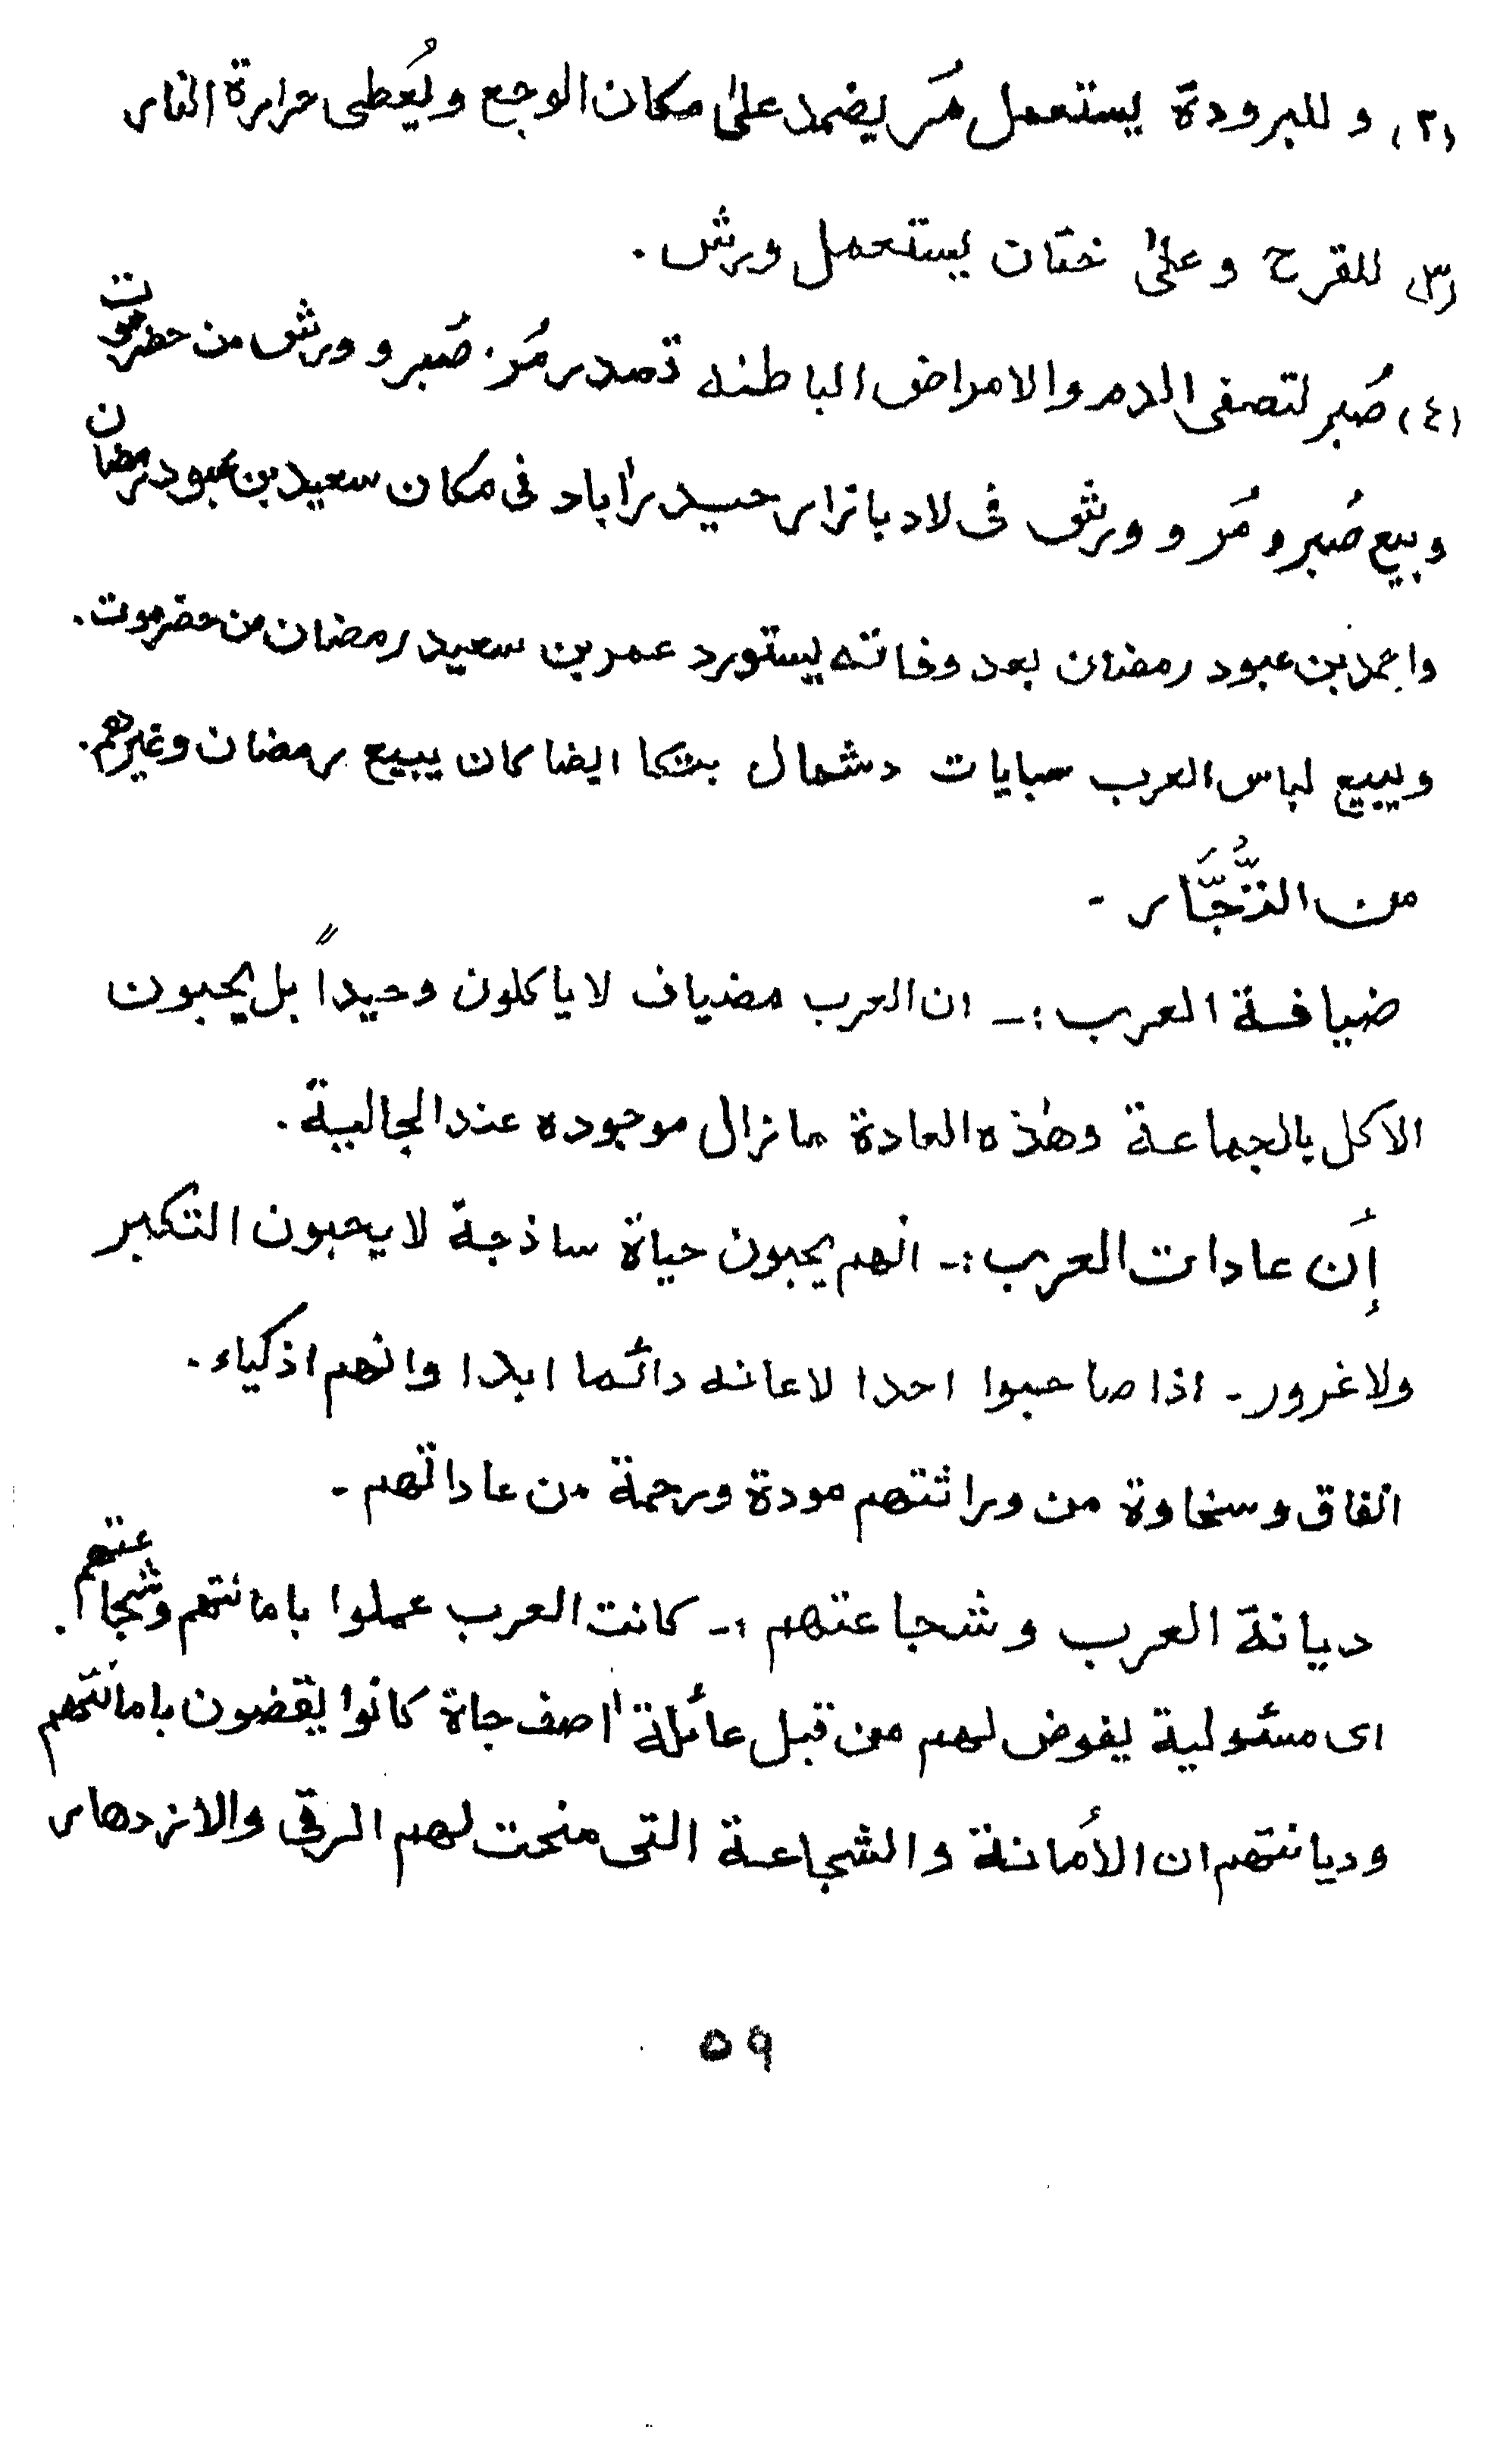 (٢) و للبرودة يستعمل مُر يضمد على مكان الوجع ويُعطى حرارة النار
(٣) للقرح وعلى ختان يستعمل ورش .
(٤) صُبر لتصفى الدم والامراض الباطنه تصدر مُر . صُبر و ورش من حضرموت
وبيع صُبر و مُر و ورش فى لاد بازار حيدراباد فى مكان سعيد بن عبود رمضان
واحمد بن عبود رمضان بعد وفاته يستورد عمر بن سعيد رمضان من حضرموت .
ويبيع لباس العرب سبايات دشمال بشكا ايضا كان يبيع رمضان وغيرهم .
من التُّجَّار -
ضيافة العرب :- ان العرب مضياف لا ياكلون وحيداً بل يحبون
الاكل بالجماعة وهٰذه العادة مازال موجوده عند الجالية .
إن عادات العرب :- انهم يحبون حياة ساذجة لا يحبون التكبر
ولا غرور - اذا صاحبوا احدا لاعانه دائما ابدا وانهم اذكياء .
انفاق وسخاوة من وراثتهم مودة ورحمة من عاداتهم -
ديانة العرب وشجاعتهم :- كانت العرب عملوا بامانتهم وشجاعتهم .
اى مسئولية يفوض لهم من قبل عائلة اصف جاة كانوا يقضون بامانتهم
وديانتهم ان الأمانة والشجاعة التى منحت لهم الرقي والازدهار
٥٩